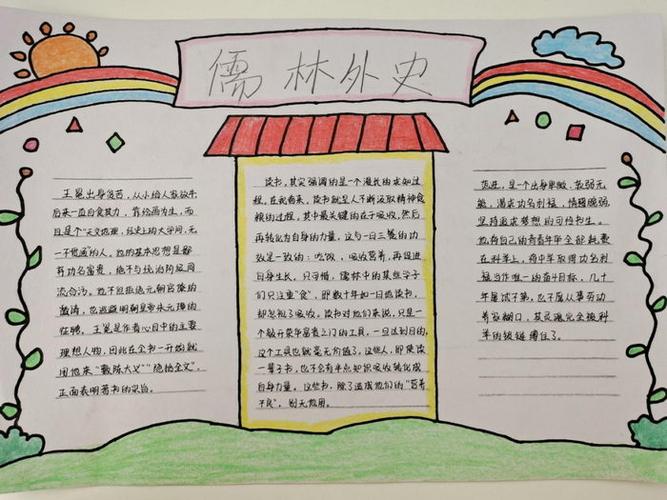 儒林外史
王冕出身贫苦，从小给人家放牛
后来一直自食其力，靠绘画为生，而
且是个“天文地理，经史上的大学问，无
一不贯通”的人。他的基本思想是鄙
弃功名富贵，绝不与统治阶级同
流合污。他不但拒绝元朝官僚的
敲诈，也逃避明朝皇帝朱元璋的
征聘。王冕是作者心目中的主要
理想人物，因此在全书一开始就
用他来“敷陈大义”“隐括全文”，
正面表明著书的宗旨。
读书，其实强调的是一个漫长的求知过
程，在我看来，读书就是人不断汲取精神食
粮的过程，其中最关键的在于吸收，然后
再转化为自身的力量，这与一日三餐的功
效是一致的：吃饭，吸收营养，再促进
自身生长，只可惜，儒林中的某些学子
们只注重“食”，即数十年如一日地读书，
却忽视了吸收。读书对他们来说，只是一
个敲开荣华富贵之门的工具，一旦达到目的，
这个工具也就毫无价值了。这些人，即使读
一辈子书，也不会有半点知识吸收转化成
自身力量。这些书，除了造成他们的“营养
不良”，别无他用。
范进，是一个出身卑微，软弱无
能，渴求功名利禄，情感脆弱
坚持追求梦想的可怜书生。
他将自己的青春年华全部耗费
在科举上，将中举取得功名利
禄当作唯一的奋斗目标，几十
年屡试不第，也不愿从事劳动
养家糊口，其灵魂完全被科
举的绳链缚住了。